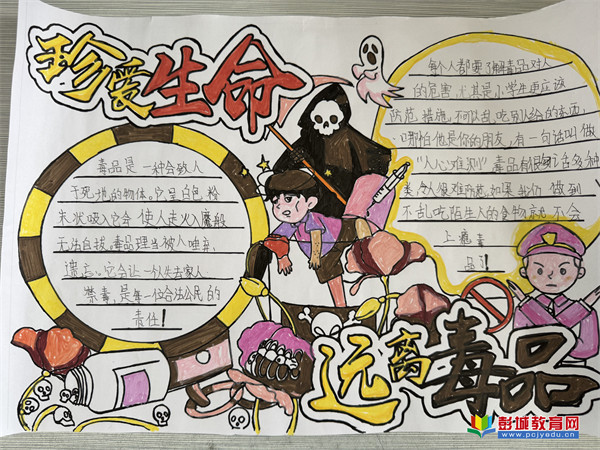 珍爱生命
毒品是一种会致人
于死地的物体。它呈白色粉
末状吸入它会使人走火入魔般
无法自拔。毒品理当被人唾弃、
遗忘。它会让一个人失去家人
禁毒,是每一位合法公民的
责任!
每个人都要了解毒品对人
的危害,尤其是小学生更应该
防范措施,不可以乱吃别人给的东西,
哪怕他是你的朋友,有一句话叫做
"人心难测"毒品有很多
类令人很难防范,如果我们做到
不乱吃陌生人的食物就不会
上瘾毒
品了!
远离毒品
彭城教育网
www.pcjyedu.cn